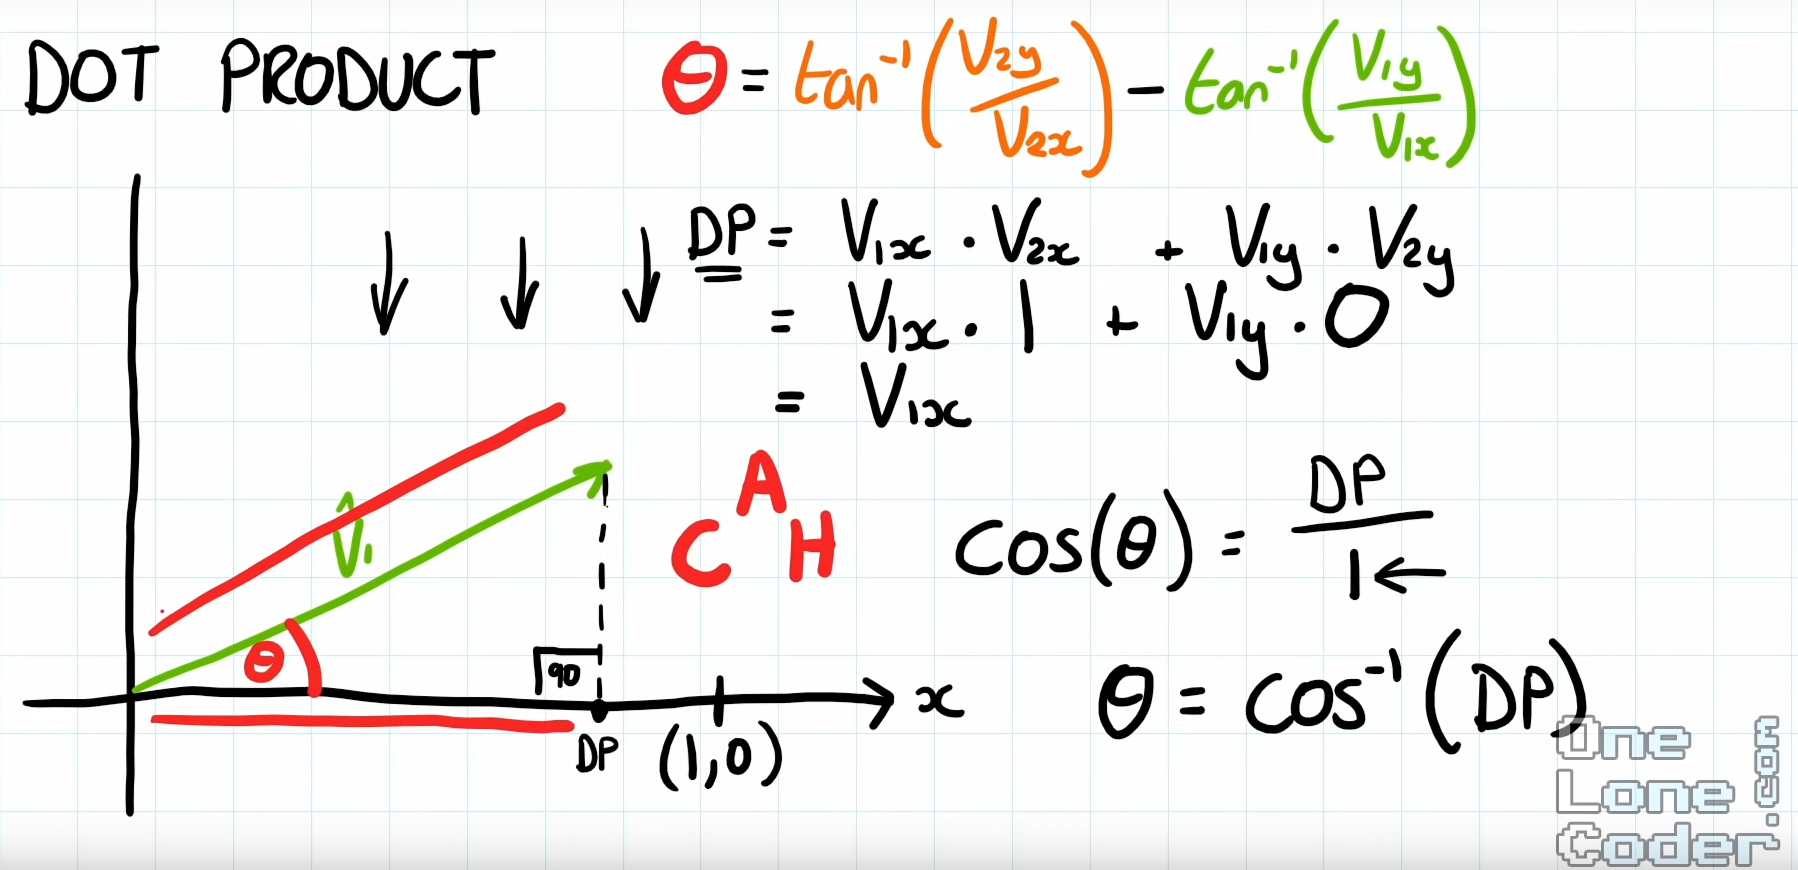 DOT PRODUCT
θ = tan⁻¹(V₂y/V₂x) − tan⁻¹(V₁y/V₁x)
DP = V₁x · V₂x + V₁y · V₂y
= V₁x · 1 + V₁y · 0
= V₁x
V̂₁
C A H
cos(θ) = DP/1 ←
θ
90
x
DP (1,0)
θ = cos⁻¹(DP)
One
Lone
Coder
.com